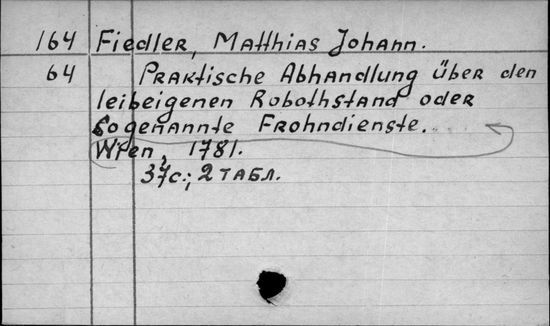 164 Fiedler, Matthias Johann.
64 Praktische Abhandlung über den
leibeigenen Robothstand oder
sogenannte Frohndienste.
Wien, 1781.
37с.; 2 табл.